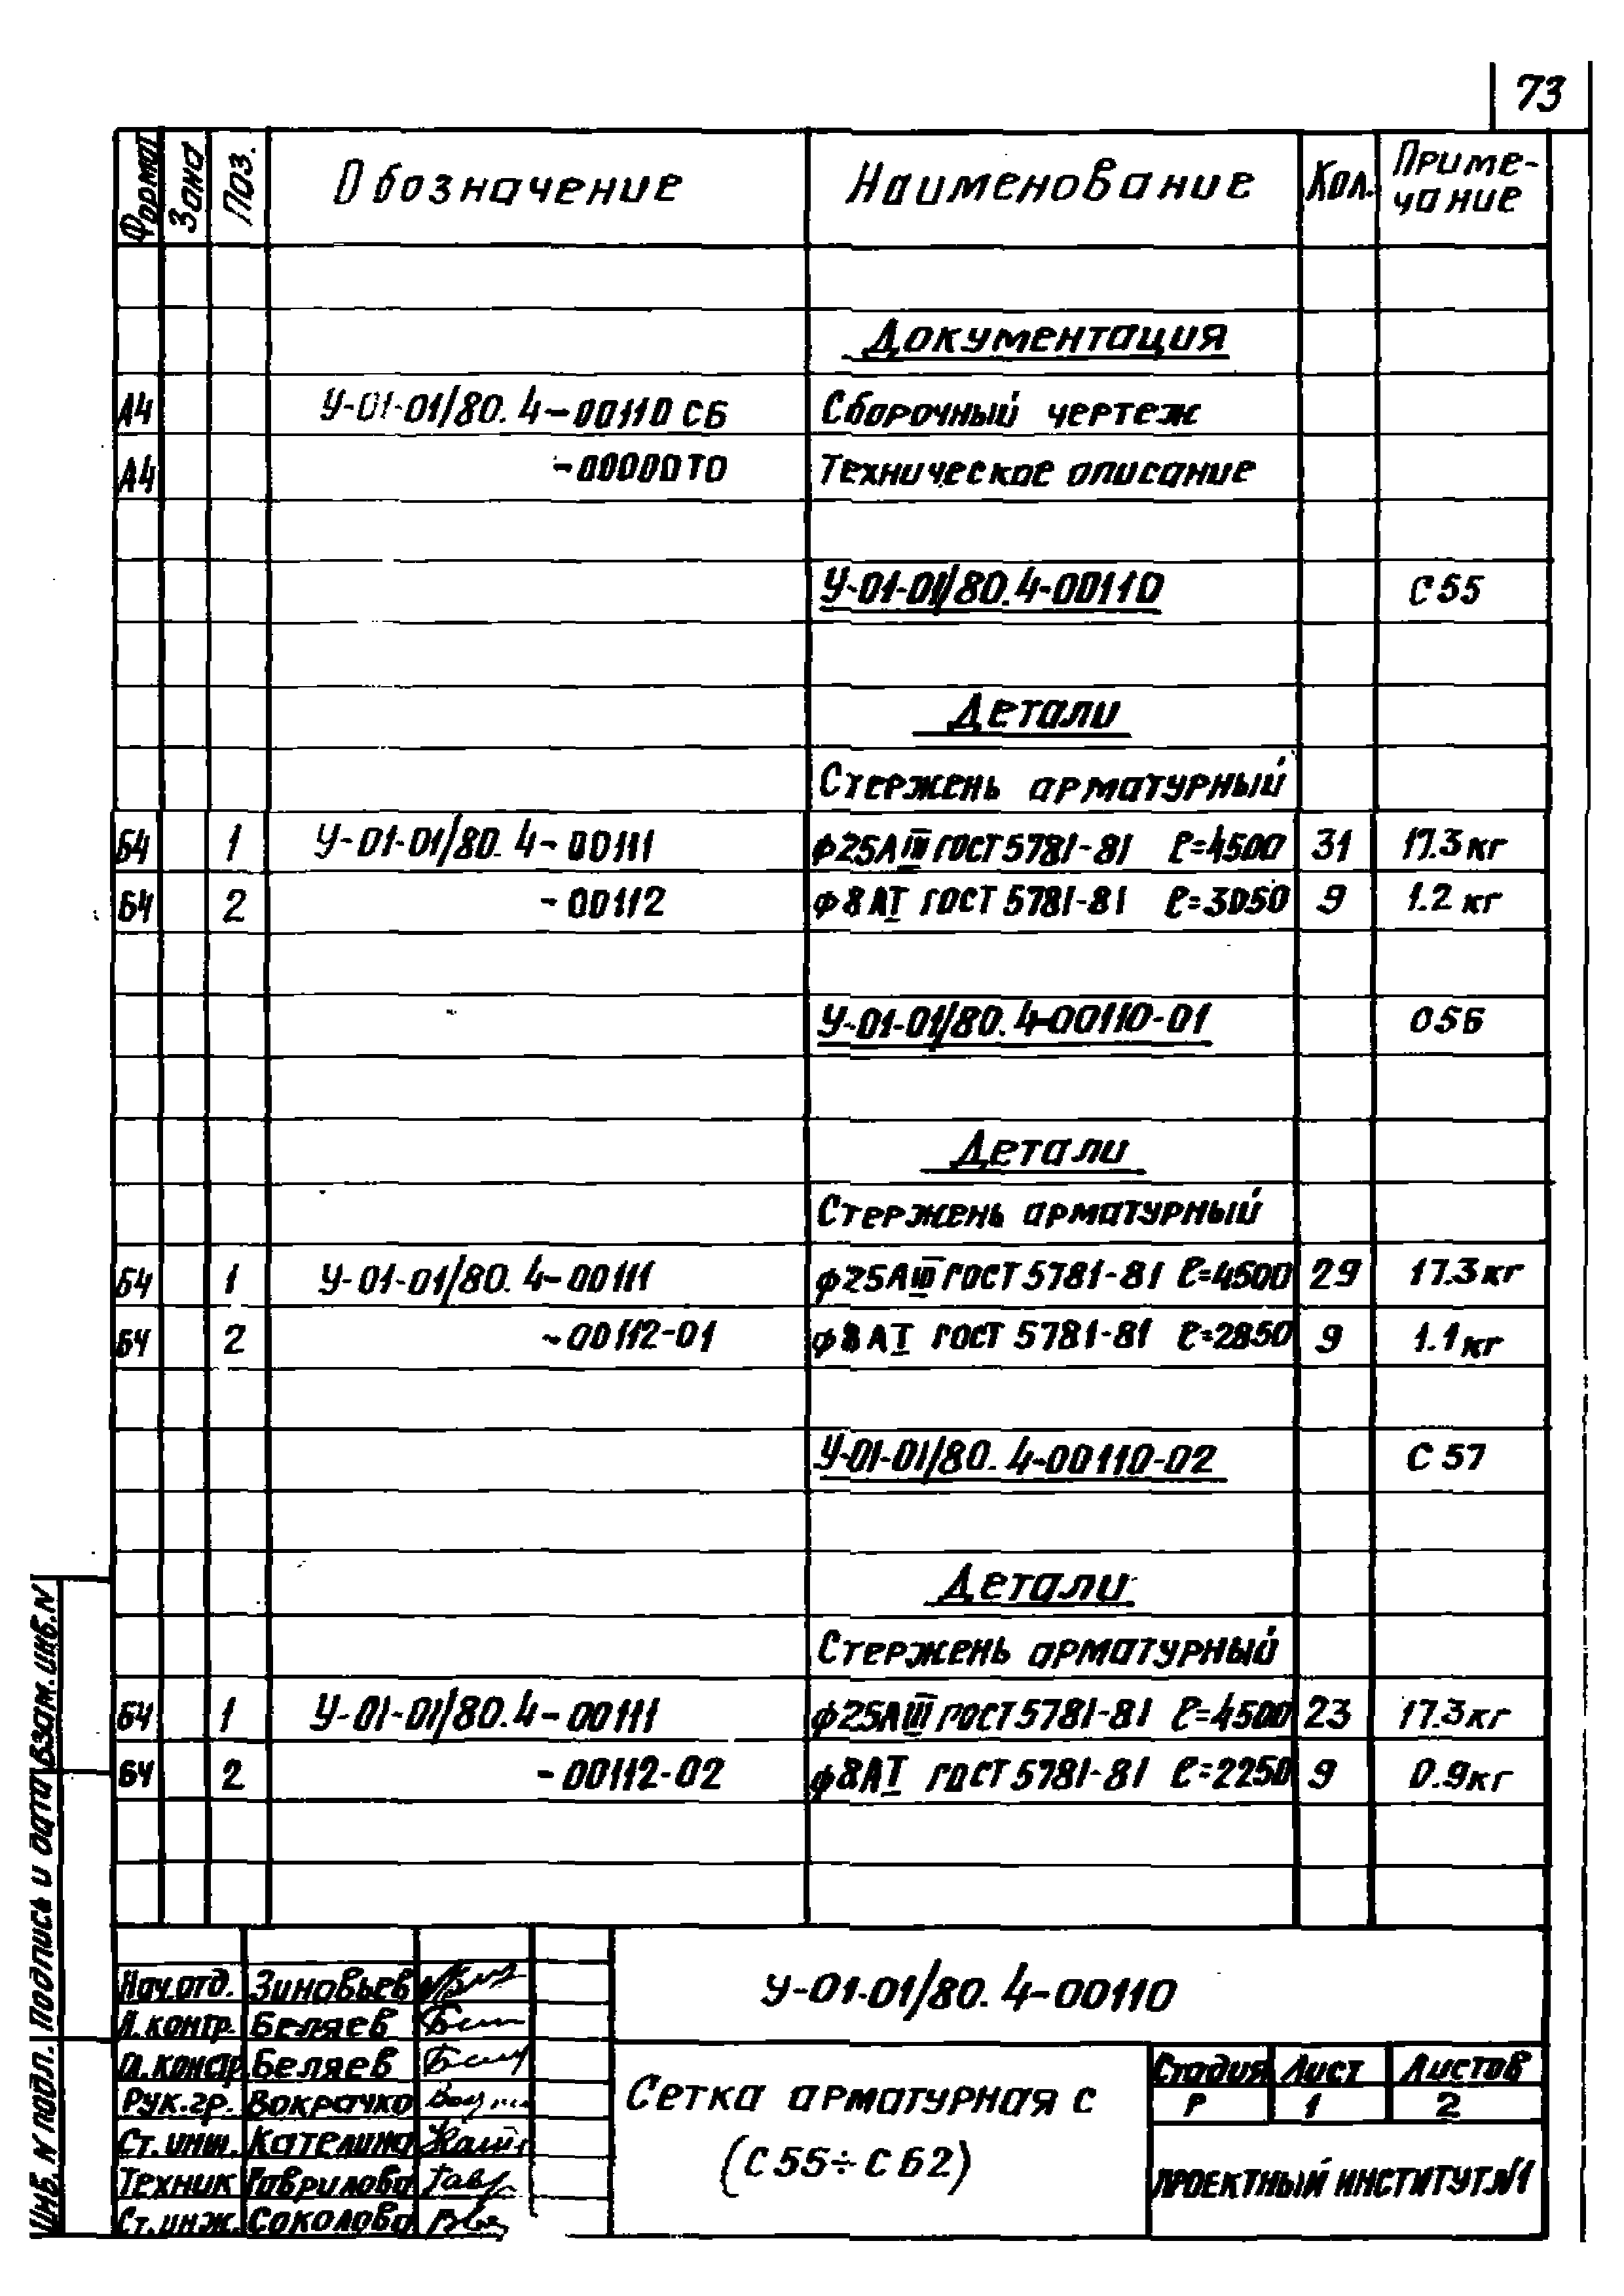 73
Формат Зона Поз. Обозначение Наименование Кол. Приме-
чание
Документация
А4 У-01-01/80.4-00110 СБ Сборочный чертеж
А4 -00000ТО Техническое описание
У-01-01/80.4-00110 С 55
Детали
Стержень арматурный
БЧ 1 У-01-01/80.4-00111 ϕ25АIII ГОСТ 5781-81 ℓ=4500 31 17.3 кг
БЧ 2 -00112 ϕ8АI ГОСТ 5781-81 ℓ=3050 9 1.2 кг
У-01-01/80.4-00110-01 С56
Детали
Стержень арматурный
БЧ 1 У-01-01/80.4-00111 ϕ25АIII ГОСТ 5781-81 ℓ=4500 29 17.3 кг
БЧ 2 -00112-01 ϕ8АI ГОСТ 5781-81 ℓ=2850 9 1.1 кг
У-01-01/80.4-00110-02 С 57
Детали
Стержень арматурный
БЧ 1 У-01-01/80.4-00111 ϕ25АIII ГОСТ 5781-81 ℓ=4500 23 17.3 кг
БЧ 2 -00112-02 ϕ8АI ГОСТ 5781-81 ℓ=2250 9 0.9 кг
Инв. N подл. Подпись и дата Взам. инв. N
Нач.отд. Зиновьев
Н.контр. Беляев
Гл.констр. Беляев
Рук.гр. Вокрачко
Ст.инж. Кателина
Техник Гаврилова
Ст.инж. Соколова
У-01-01/80.4-00110
Сетка арматурная С
(С 55÷С 62)
Стадия Лист Листов
Р 1 2
ПРОЕКТНЫЙ ИНСТИТУТ №1